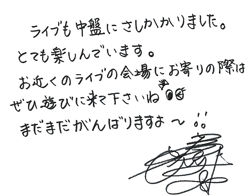 ライブも中盤にさしかかりました。
とても楽しんでいます。
お近くのライブの会場にお寄りの際は
ぜひ遊びに来て下さいね
まだまだがんばりますよ〜!!